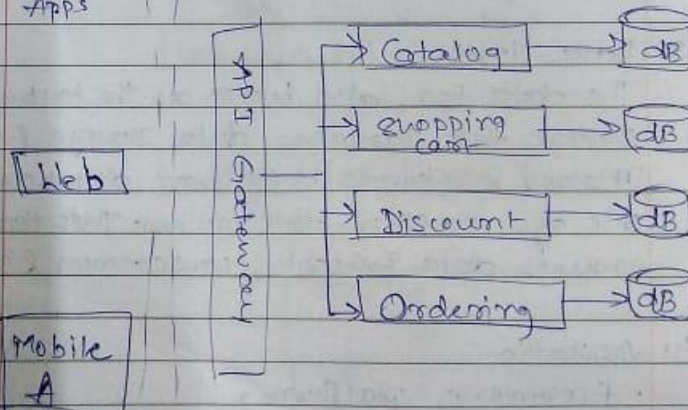 Apps
Web
Mobile
A
API Gateway
Catalog
dB
Shopping
cart
dB
Discount
dB
Ordering
dB